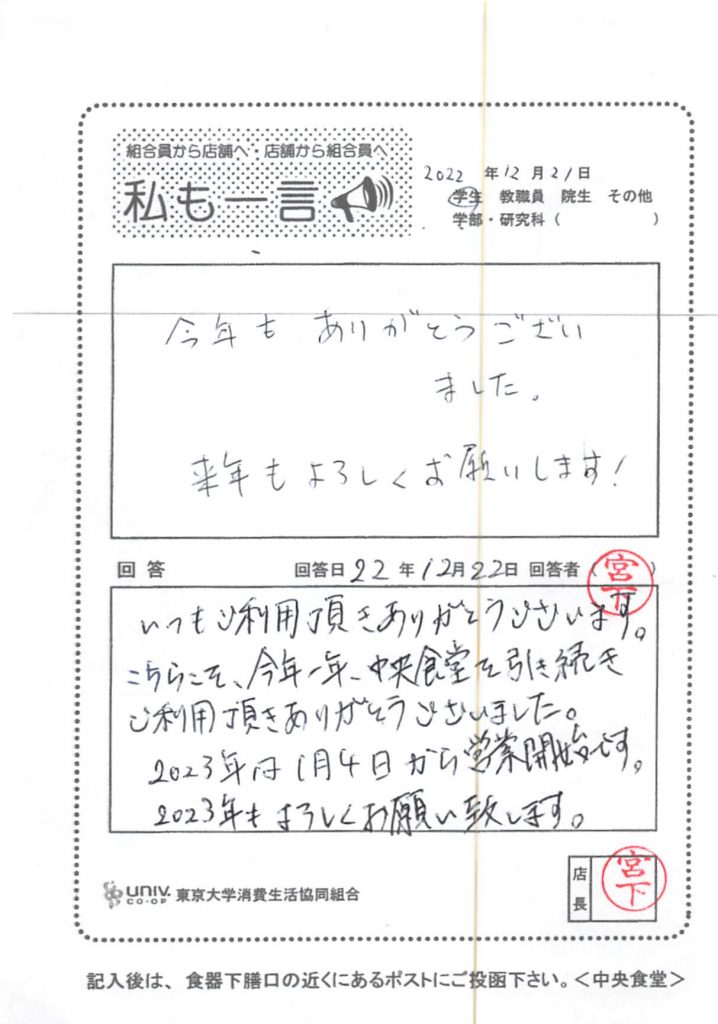 組合員から店舗へ・店舗から組合員へ
私も一言
2022 年 12 月 21 日
学生 教職員 院生 その他
学部・研究科 ( )
今年も ありがとうござい
ました。
来年もよろしくお願いします!
回 答 回答日 22 年 12月 22日 回答者 ( 宮下 )
いつもご利用頂きありがとうございます。
こちらこそ、今年一年、中央食堂を引き続き
ご利用頂きありがとうございました。
2023年は 1月4日から営業開始です。
2023年もよろしくお願い致します。
UNIV. CO-OP 東京大学消費生活協同組合
店長 宮下
記入後は、食器下膳口の近くにあるポストにご投函下さい。<中央食堂>